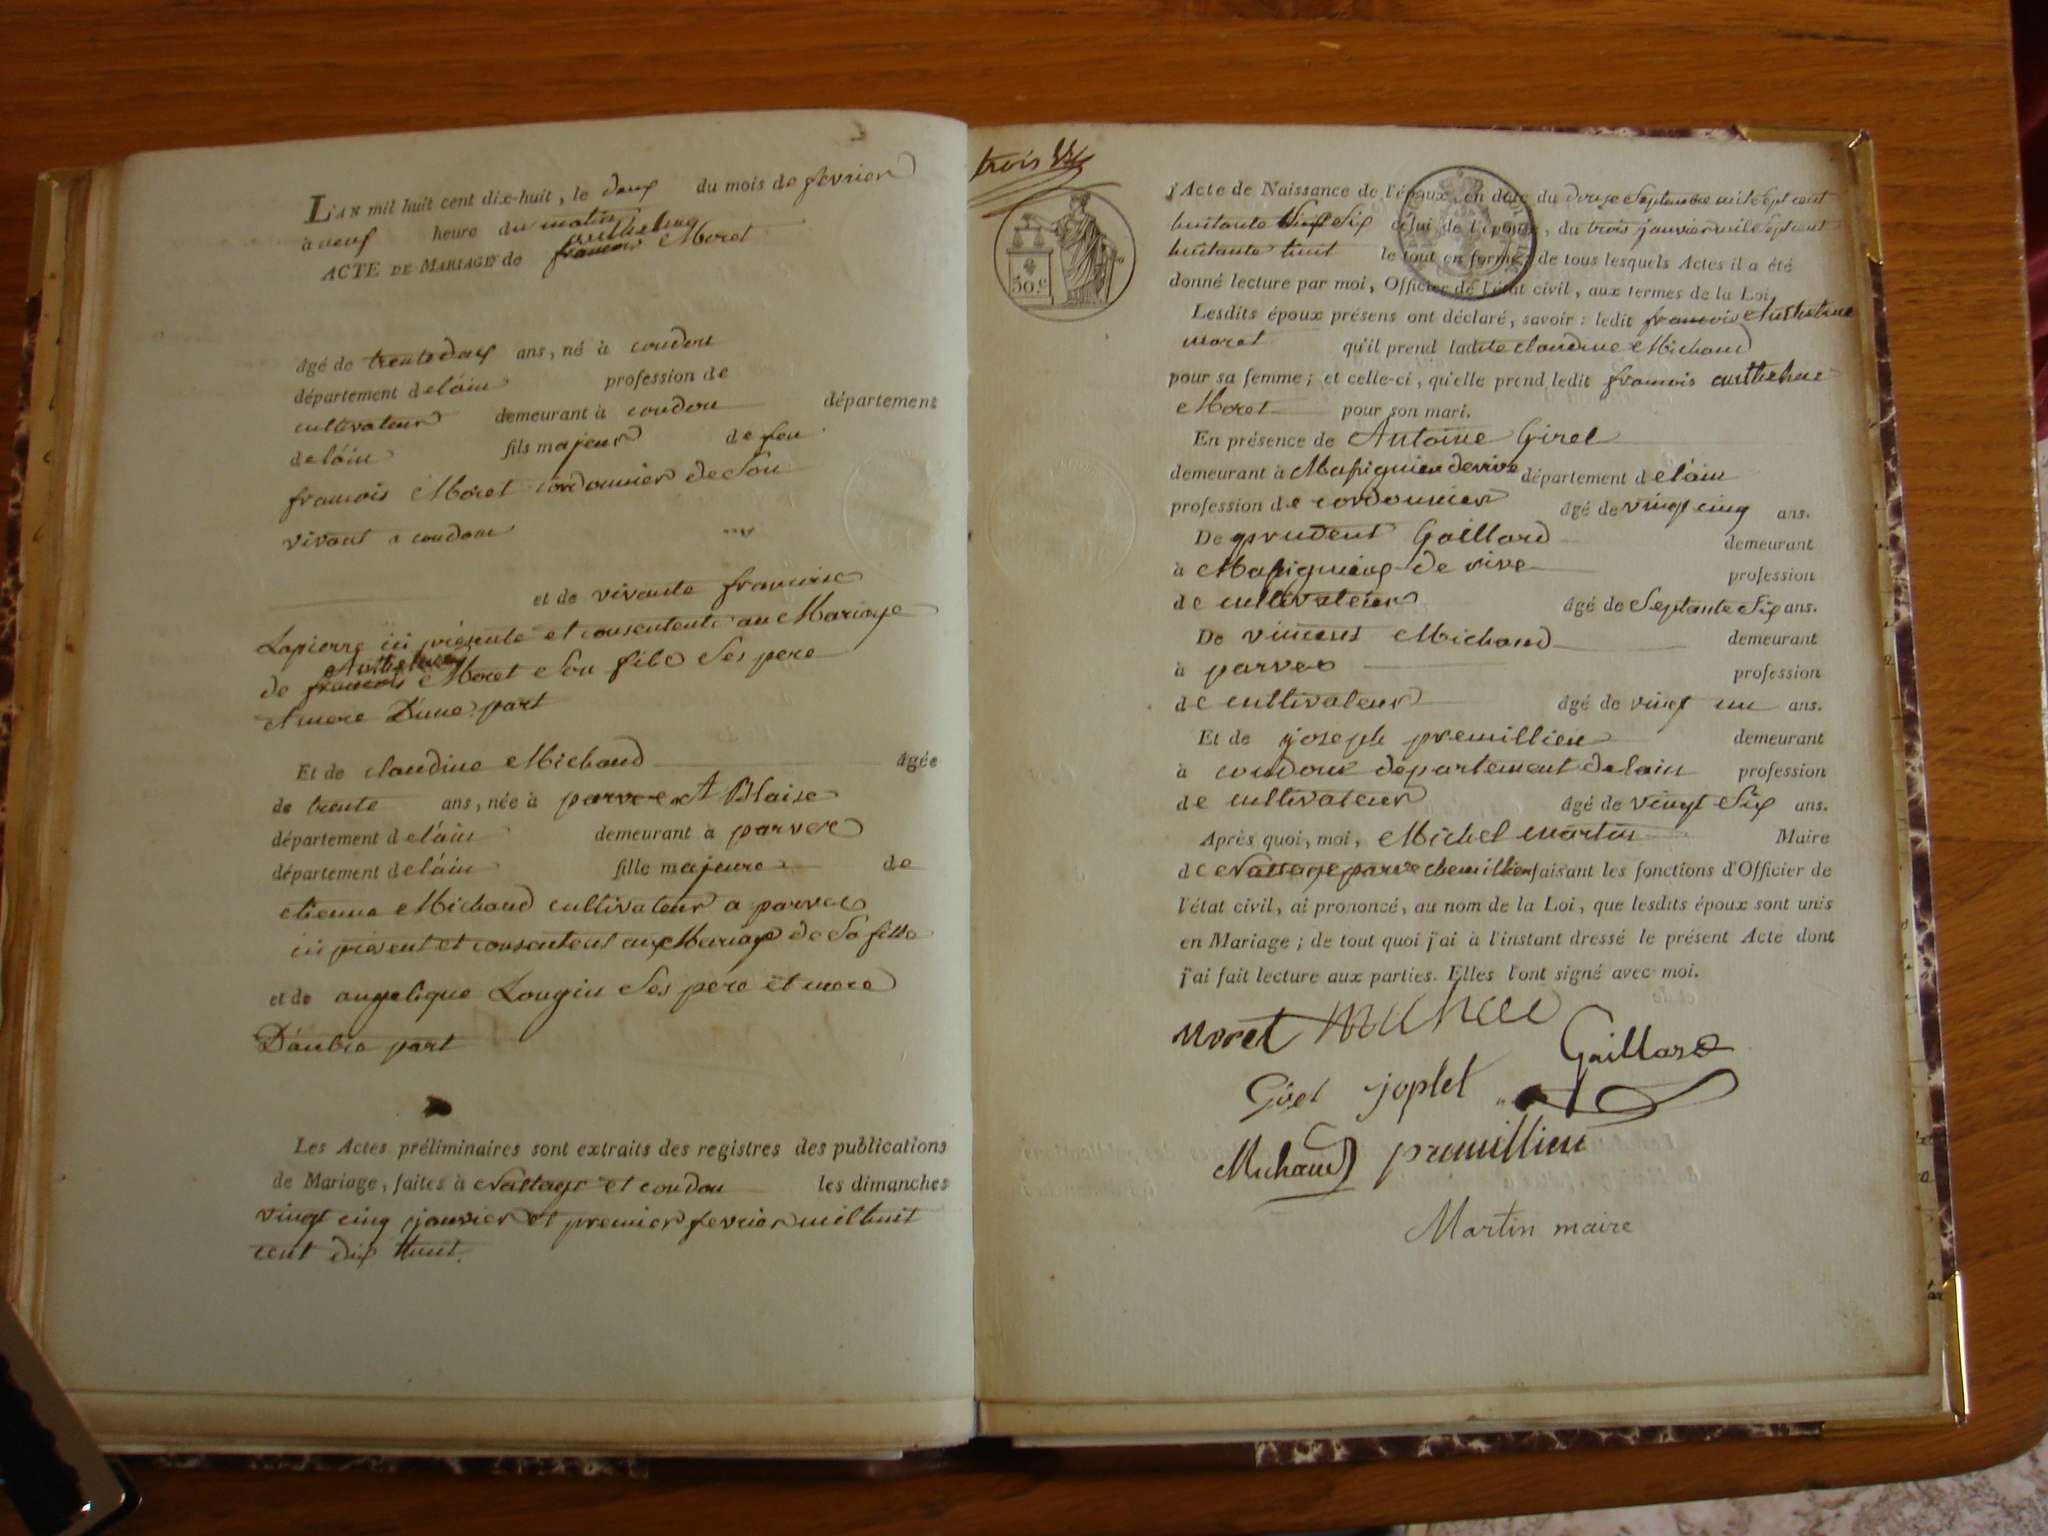 L'AN mil huit cent dix-huit, le deux du mois de fevrier
à neuf heure du matin
anthelme
ACTE DE MARIAGE de francois Moret
âgé de trente deux ans, né à coudon
département de l'ain profession de
cultivateur demeurant à coudon département
de l'ain fils majeur de feu
francois Moret cordonnier de son
vivant a coudon
et de vivante francoise
Lapierre ici présente et consentente au Mariage
Anthelme
de francois Moret son fils ses pere
et mere D'une part
Et de claudine Michaud âgée
de trente ans, née à parves st Blaise
département de l'ain demeurant à parves
département de l'ain fille majeure de
etienne Michaud cultivateur a parves
ici présent et consentent au Mariage de sa fille
et de angelique Lougin ses pere et mere
D'autre part
Les Actes préliminaires sont extraits des registres des publications
de Mariage, faites à Nattage et coudon les dimanches
vingt cinq janvier et premier fevrier mil huit
cent dix huit.
trois
50.c
l'Acte de Naissance de l'époux, en date du douze septembre mil sept cent
huitante six celui de l'épouse, du trois janvier mil sept cent
huitante huit le tout en forme; de tous lesquels Actes il a été
donné lecture par moi, Officier de l'état civil, aux termes de la Loi.
Lesdits époux présens ont déclaré, savoir: ledit francois Anthelme
moret qu'il prend ladite claudine Michaud
pour sa femme; et celle-ci, qu'elle prend ledit francois anthelme
Moret pour son mari.
En présence de Antoine Girel
demeurant à Massignieu de rive département de l'ain
profession de cordonnier âgé de vingt cinq ans.
De prudent Gaillard demeurant
à Massignieu de rive profession
de cultivateur âgé de septante six ans.
De vincent Michaud demeurant
à parves profession
de cultivateur âgé de vingt un ans.
Et de joseph premillieu demeurant
à coudon département de lain profession
de cultivateur âgé de vingt six ans.
Après quoi, moi, Michel martin Maire
de Nattage parve chemillieu faisant les fonctions d'Officier de
l'état civil, ai prononcé, au nom de la Loi, que lesdits époux sont unis
en Mariage; de tout quoi j'ai à l'instant dressé le présent Acte dont
j'ai fait lecture aux parties. Elles l'ont signé avec moi.
Moret
Gaillard
Girel joplet
Michaud premillieu
Martin maire